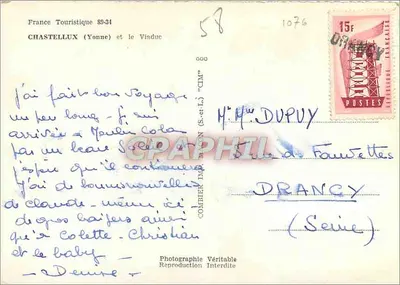 France Touristique 89-34
CHASTELLUX (Yonne) et le Viaduc
58
1076
15F
DRANCY
POSTES
CIM
COMBIER IMP. MACON (S.-et-L.) "CIM"
CARTPHIL
J'ai fait bon voyage
un peu long - je suis
arrivée à Moulin Colas
par un beau Soleil et
j'espère qu'il continuera
J'ai de bonnes nouvelles
de Claude - même ici
de gros baisers ainsi
qu'à Colette - Christian
et le baby -
- Denise -
Mr Mme DUPUY
5 rue des Fauvettes
DRANCY
(Seine)
Photographie Véritable
Reproduction Interdite